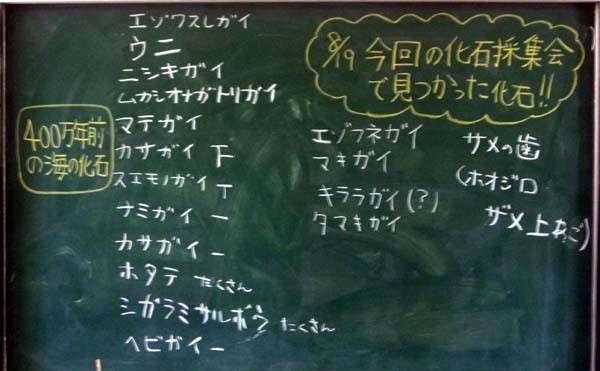 8/9 今回の化石採集会
で見つかった化石!!
400万年前
の海の化石
エゾワスレガイ
ウニ
ニシキガイ
ムカシオナガトリガイ
マテガイ
カサガイ 下
スエモノガイ T
ナミガイ 一
カサガイ 一
ホタテ たくさん
シガラミサルボウ たくさん
ヘビガイ 一
エゾフネガイ
マキガイ
キララガイ(?)
タマキガイ
サメの歯
(ホオジロ
ザメ 上あご)